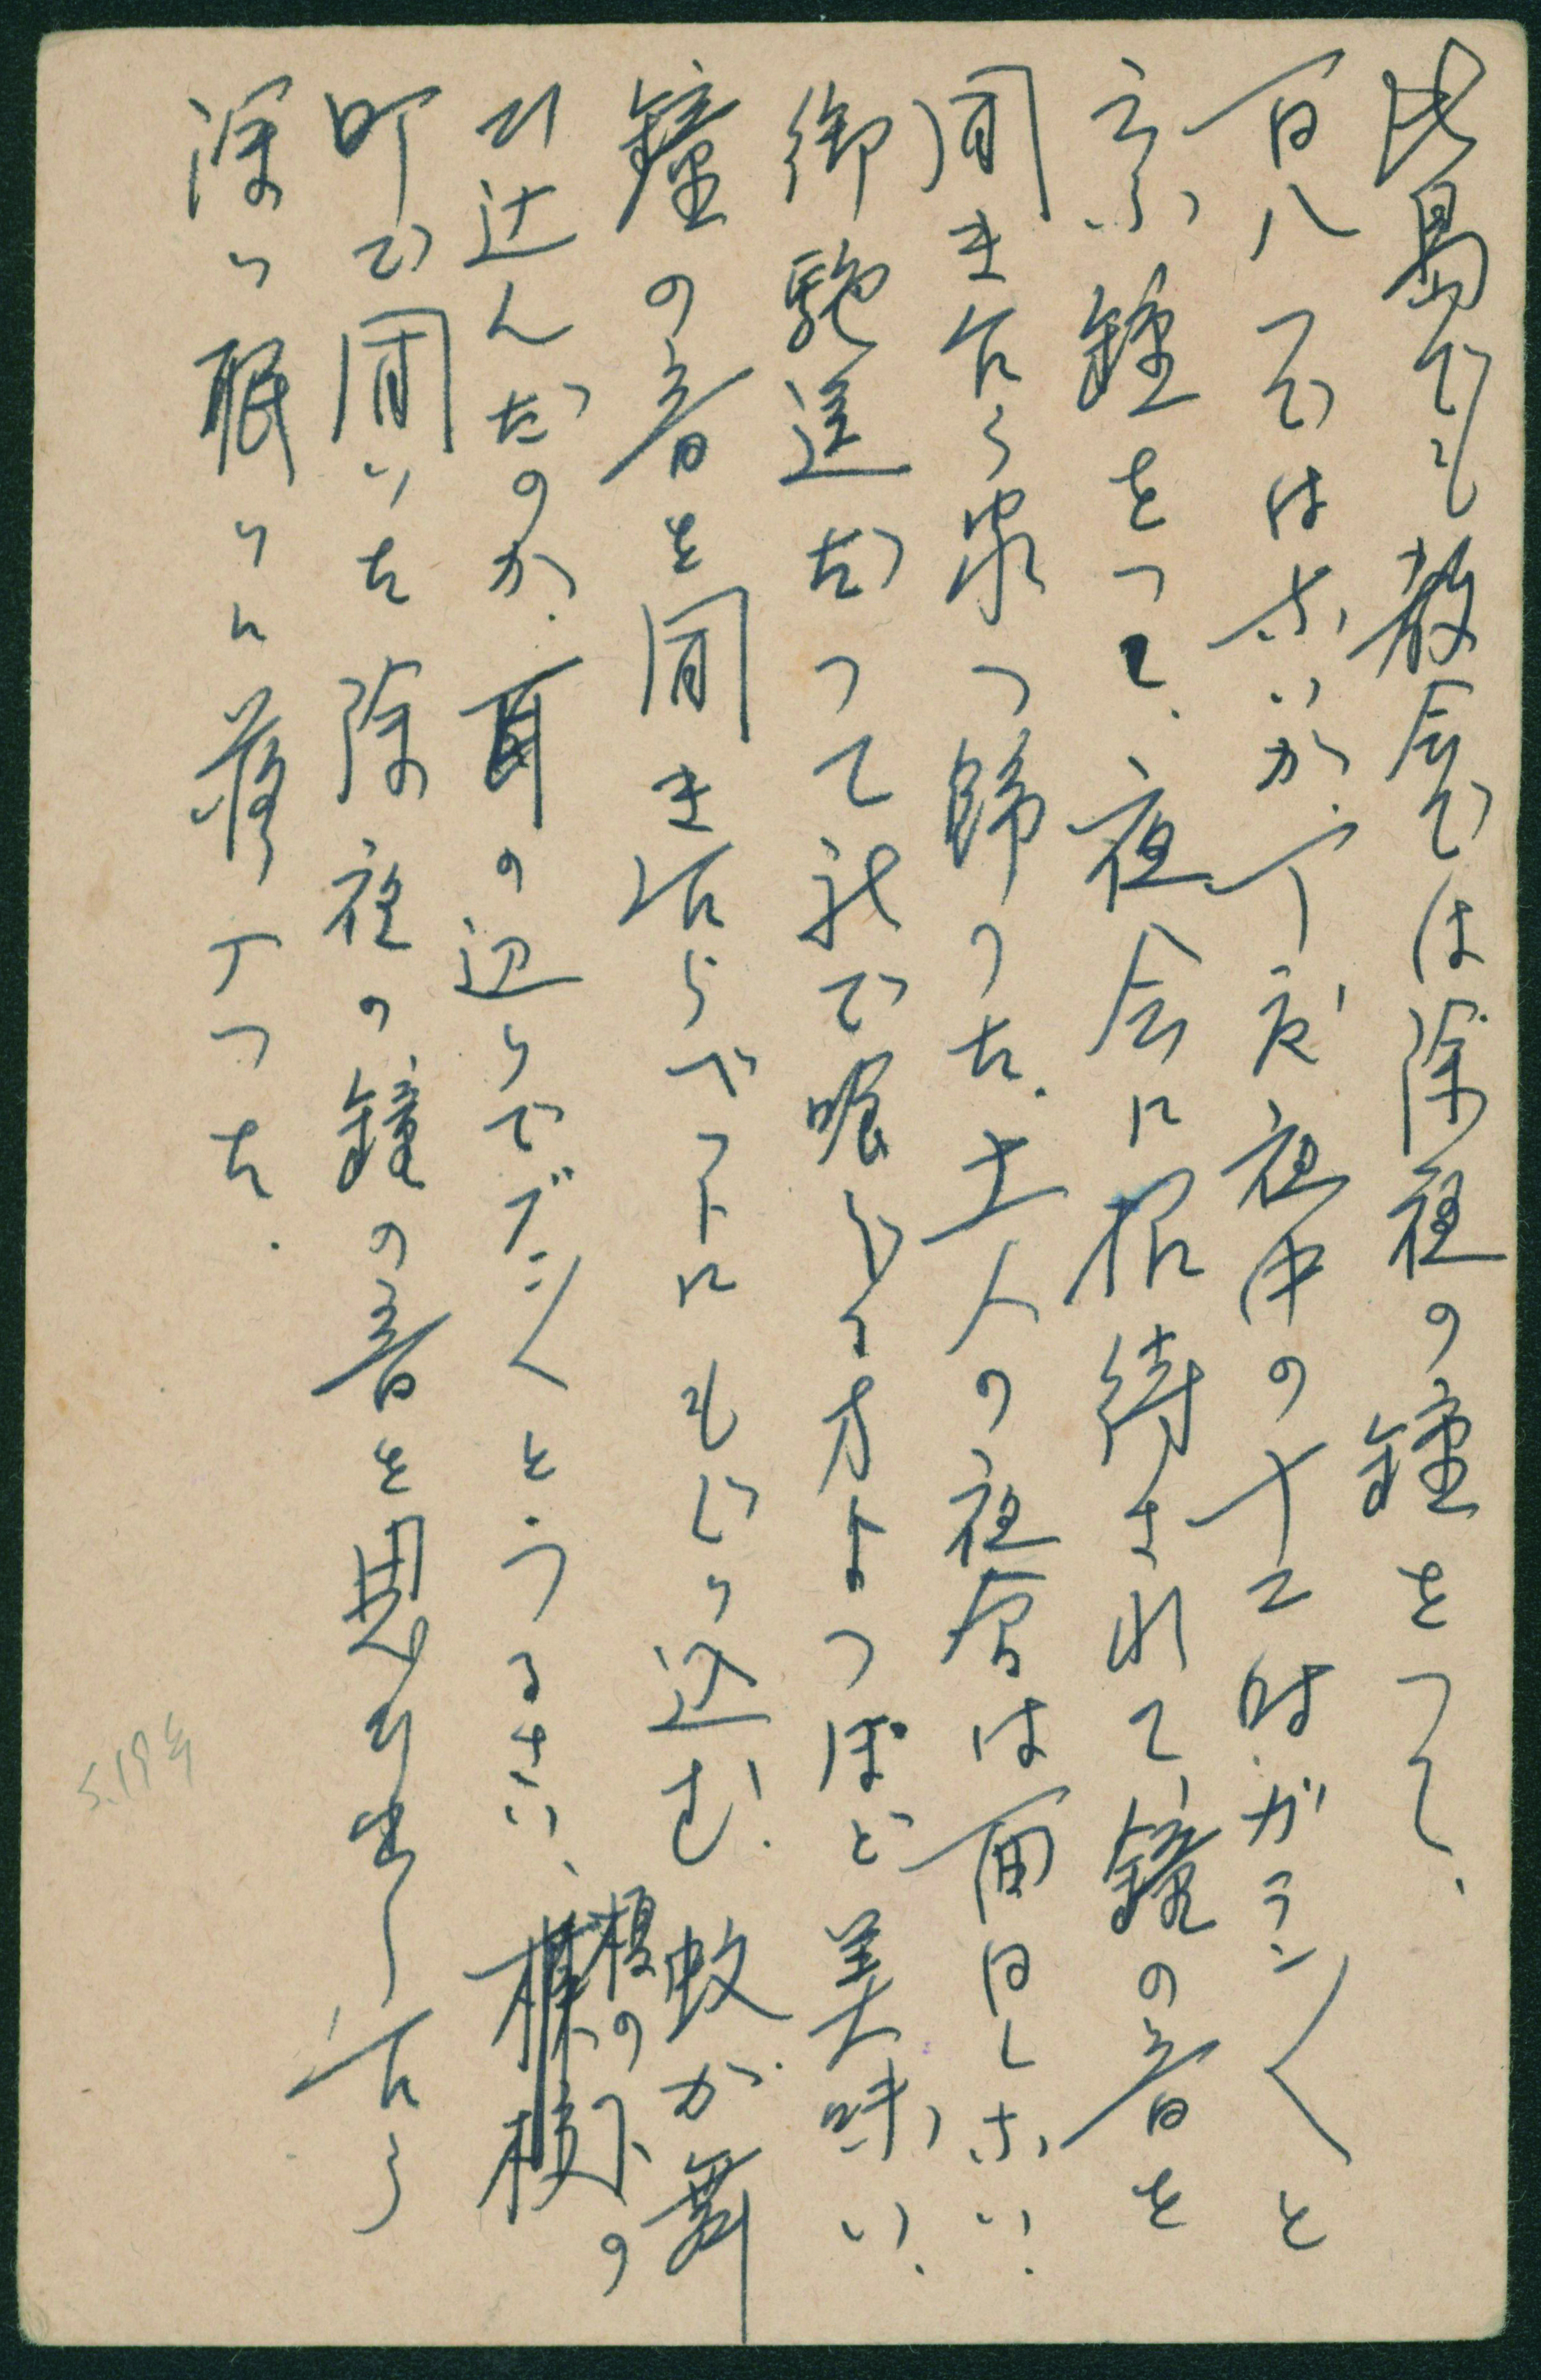 此島でも教会では除夜の鐘をつく、
百八つではないが、丁度夜中の十二時ガラン〳〵と
云ふ鐘をつく、夜会に招待されて、鐘の音を
聞き乍ら帰つた、土人の夜会は面白しない、
御馳走だつて我で喰ふ方よつぽど美味い、
鐘の音を聞き乍らベツトにもぐり込む、蚊が舞
ひ込んだのか、耳の辺りでブン〳〵とうるさい、榎の下の
町で聞いた除夜の鐘の音を思ひ出し乍ら
深い眠りに落ちた.